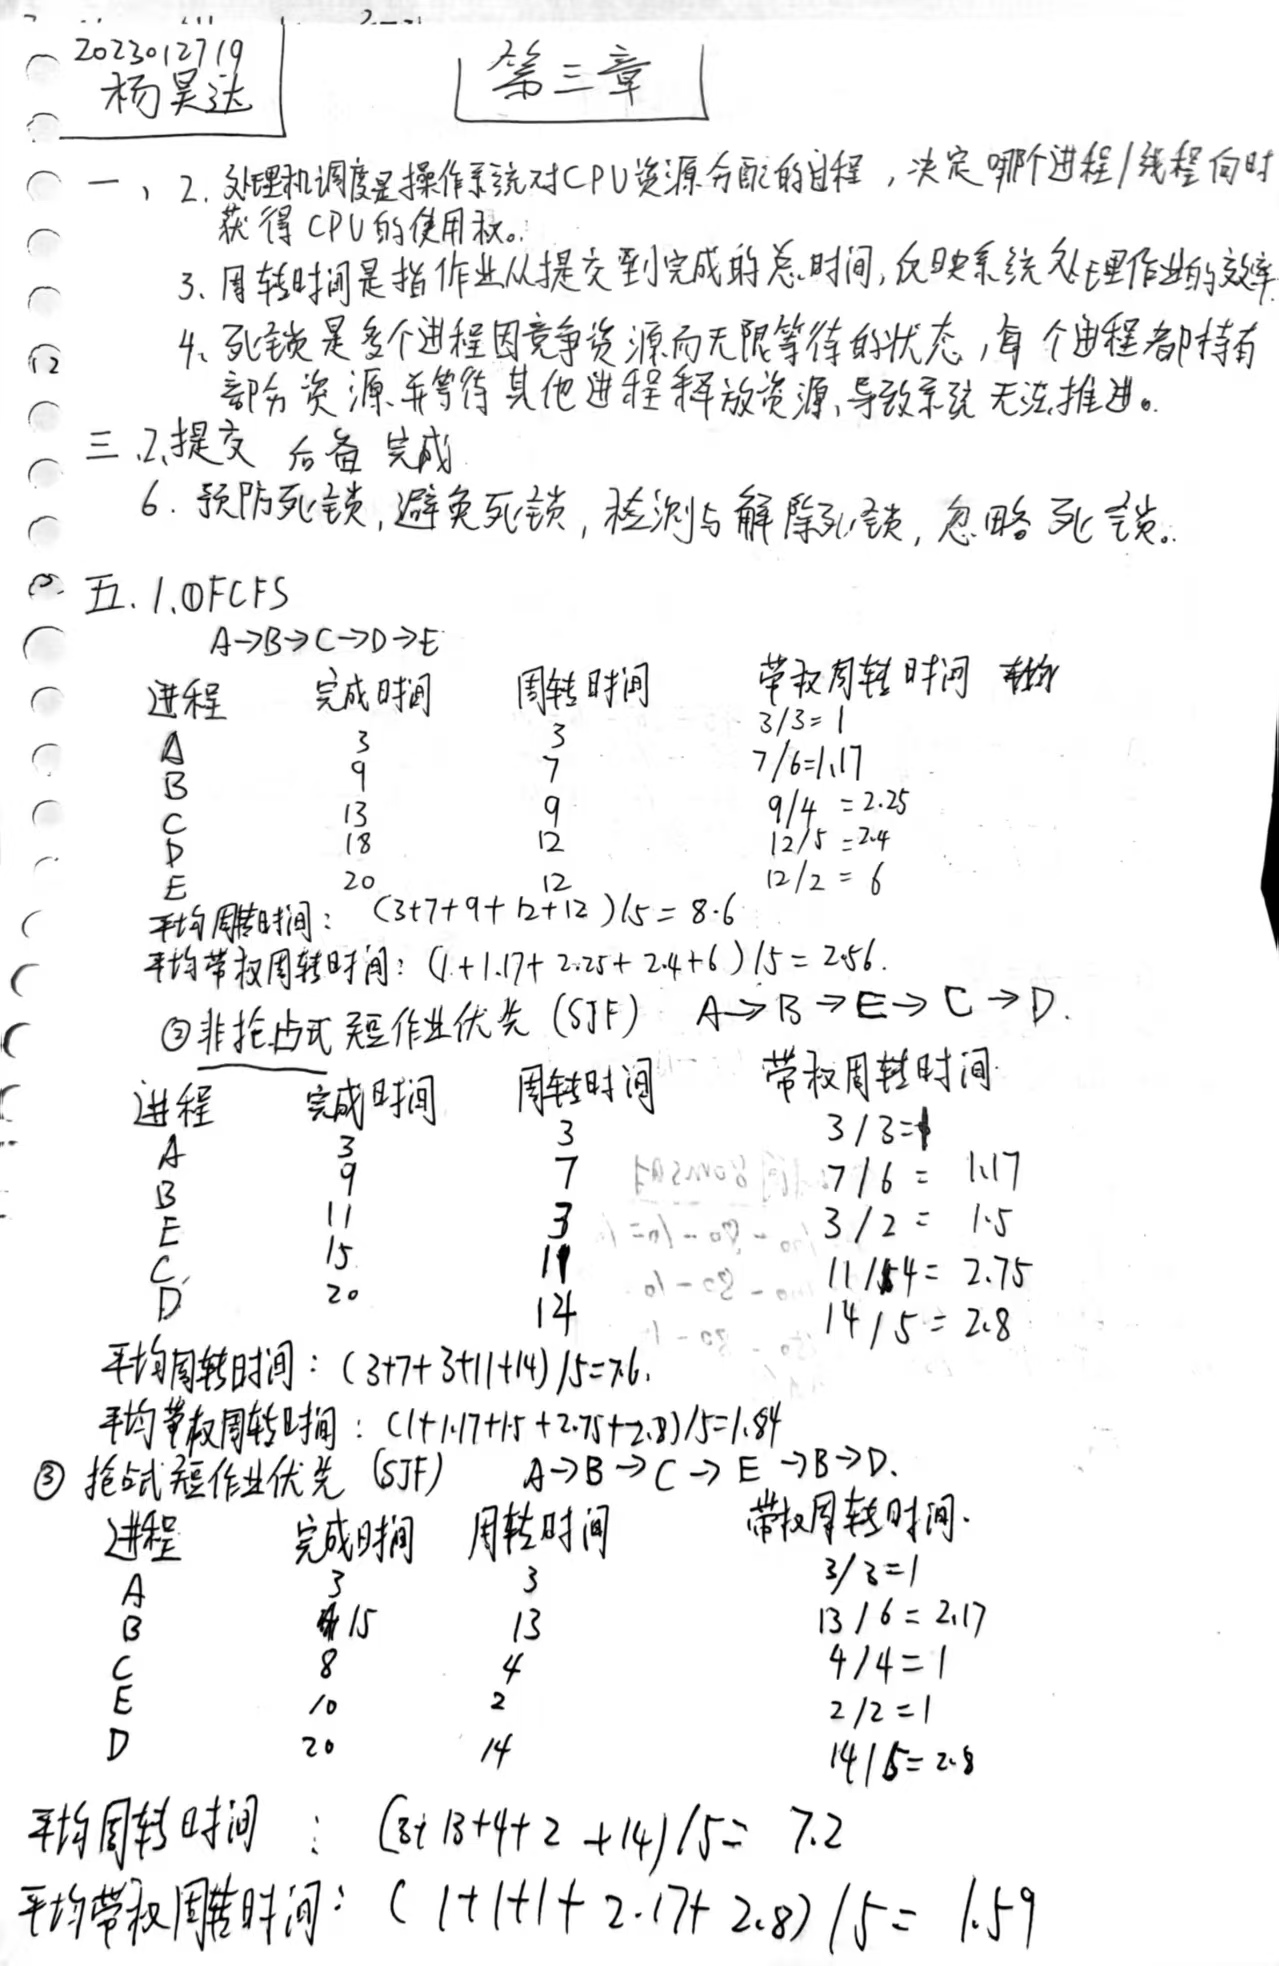 2023012719
杨昊达
第三章
一、2. 处理机调度是操作系统对CPU资源分配的过程，决定哪个进程/线程何时
获得CPU的使用权。
3、周转时间是指作业从提交到完成的总时间,反映系统处理作业的效率.
4、死锁是多个进程因竞争资源而无限等待的状态,每个进程都持有
部分资源并等待其他进程释放资源,导致系统无法推进。
三、2、提交 后备 完成
6. 预防死锁,避免死锁,检测与解除死锁,忽略死锁。
五. 1、①FCFS
A→B→C→D→E
进程 完成时间 周转时间 带权周转时间
A 3 3 3/3=1
B 9 7 7/6=1.17
C 13 9 9/4=2.25
D 18 12 12/5=2.4
E 20 12 12/2=6
平均周转时间：(3+7+9+12+12)/5=8.6
平均带权周转时间：(1+1.17+2.25+2.4+6)/5=2.56.
②非抢占式短作业优先(SJF) A→B→E→C→D.
进程 完成时间 周转时间 带权周转时间.
A 3 3 3/3=1
B 9 7 7/6=1.17
E 11 3 3/2=1.5
C 15 11 11/4=2.75
D 20 14 14/5=2.8
平均周转时间：(3+7+3+11+14)/5=7.6.
平均带权周转时间：(1+1.17+1.5+2.75+2.8)/5=1.84
③ 抢占式短作业优先(SJF) A→B→C→E→B→D.
进程 完成时间 周转时间 带权周转时间.
A 3 3 3/3=1
B 15 13 13/6=2.17
C 8 4 4/4=1
E 10 2 2/2=1
D 20 14 14/5=2.8
平均周转时间：(3+13+4+2+14)/5=7.2
平均带权周转时间：(1+1+1+2.17+2.8)/5=1.59